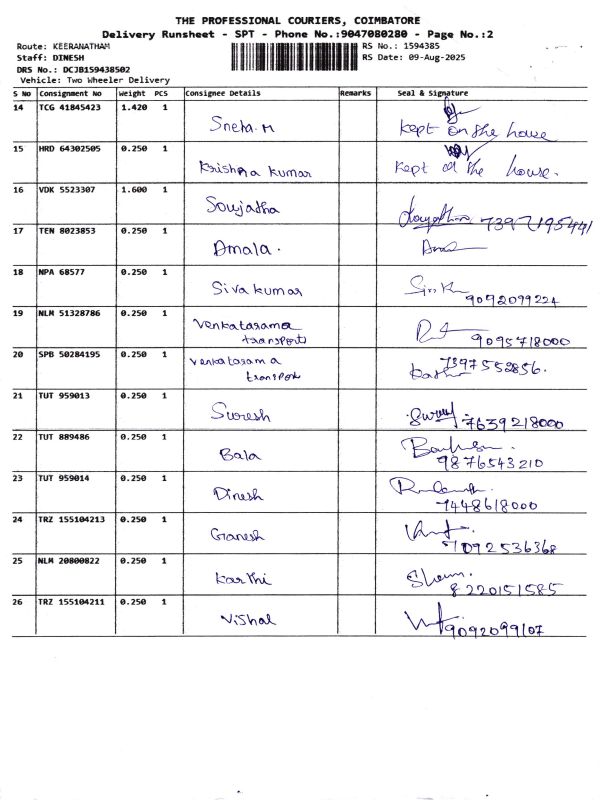 THE PROFESSIONAL COURIERS, COIMBATORE
Delivery Runsheet - SPT - Phone No.:9047080280 - Page No.:2
Route: KEERANATHAM
RS No.: 1594385
Staff: DINESH
RS Date: 09-Aug-2025
DRS No.: DCJB159438502
Vehicle: Two Wheeler Delivery
S No Consignment No Weight PCS Consignee Details Remarks Seal & Signature
14 TCG 41845423 1.420 1
Sneha.M kept on the house
15 HRD 64302505 0.250 1
Krishna kumar kept at the house.
16 VDK 5523307 1.600 1
Soujatha 7397195441
17 TEN 8023853 0.250 1
Amala.
18 NPA 68577 0.250 1
Siva kumar 9092099224
19 NLM 51328786 0.250 1
Venkatarama
transport 9095718000
20 SPB 50284195 0.250 1
Venkatarama 7397552856.
transport
21 TUT 959013 0.250 1
Suresh 7639218000
22 TUT 889486 0.250 1
Bala 9876543210
23 TUT 959014 0.250 1
Dinesh 7448618000
24 TRZ 155104213 0.250 1
Ganesh 7092536368
25 NLM 20800822 0.250 1
Karthi 8220151585
26 TRZ 155104211 0.250 1
Vishal 9092099107